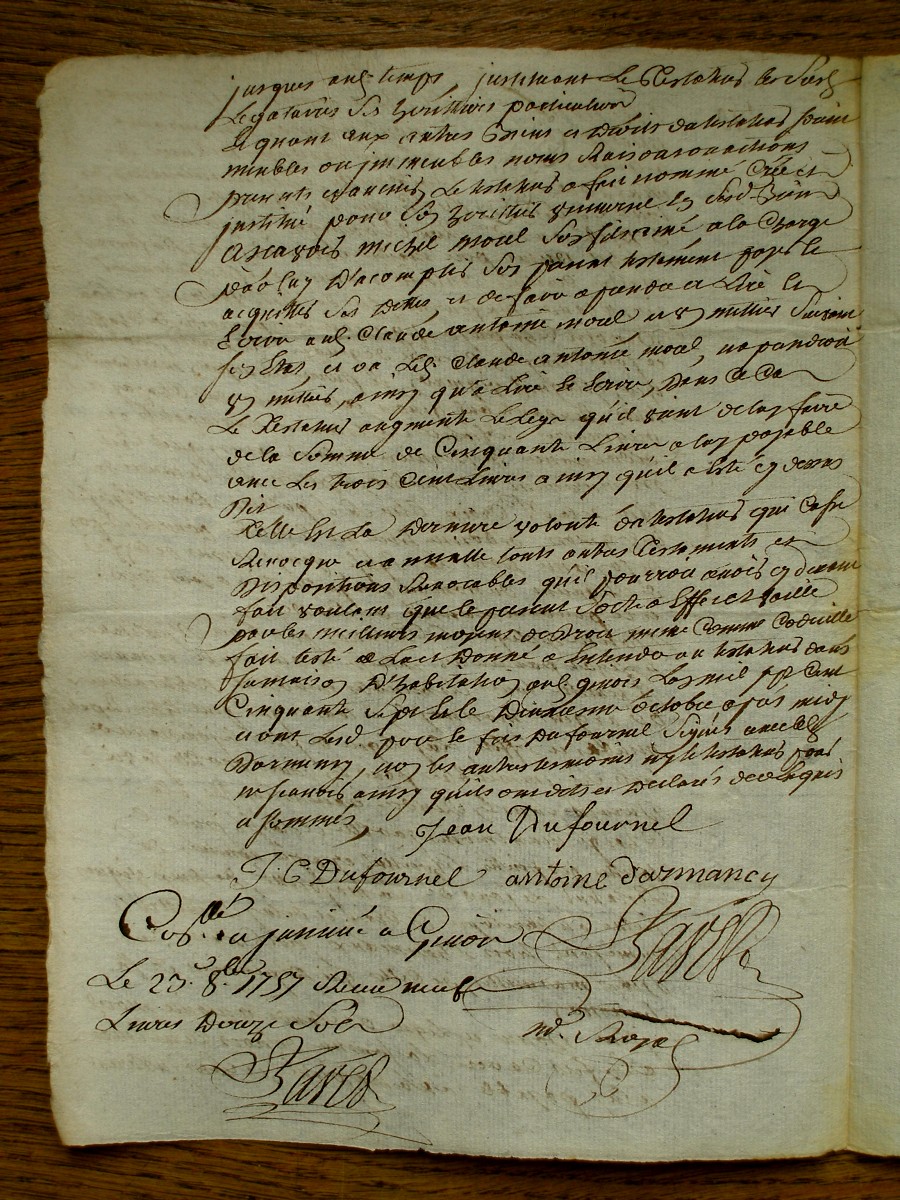 jusques aud. temps, instituant le testateur les susd.
Legataires ses heritiers particuliers
Et quant aux autres biens et droits du testateur soint
meubles ou immeubles noms raisons ou actions
presents et avenirs, le testateur a fait nommé Créé et
institué pour son heritier universel led. susd.
A scavoir michel morel son fils ainé a la Charge
par luy D'acomplir son present testament payer et
acquitter ses dettes, et de faire aprendre a Lire et
Ecrire aud. Claude antoine morel et un mettier suivant
son Etat, et ou led. Claude antoine morel, n'aprendroit
un mettier, ainsy qu'a Lire et Ecrire, Dans ce Cas
Le Testateur augmente le Legat qu'il vient de luy faire
de la somme de Cinquante Livres a luy payable
avec Les trois Cent Livres ainsy qu'il a Esté cy dessus
Dit
Telle Est La Derniere volonté du testateur qui Casse
Revocque et annulle touts autres Testaments et
Dispositions Revocables qu'il pourroit avoir cy devant
fait voulant que le present sorte a Effect et vaille
par les meilleurs moyens de Droit meme Comme Codicille
fait Leu et Donné a Entendre au testateur dans
sa maison D'habitation aud. l'an mil sept Cent
Cinquante sept Et le Dixieme octobre apres midy
et ont Lesd. pere et fils Dufournel signés avec led.
Darmancy, non les autres temoins ny le testateur pour
ne scavoir ainsy qu'ils ont dits et Declarés de ce Enquis
et sommés, Jean Dufournel
J. C Dufournel antoine Darmancy
Collé. et insinué a
Le 23. 8bre 1757 Receu neuf
Livres Douze Sols
nore. Royal